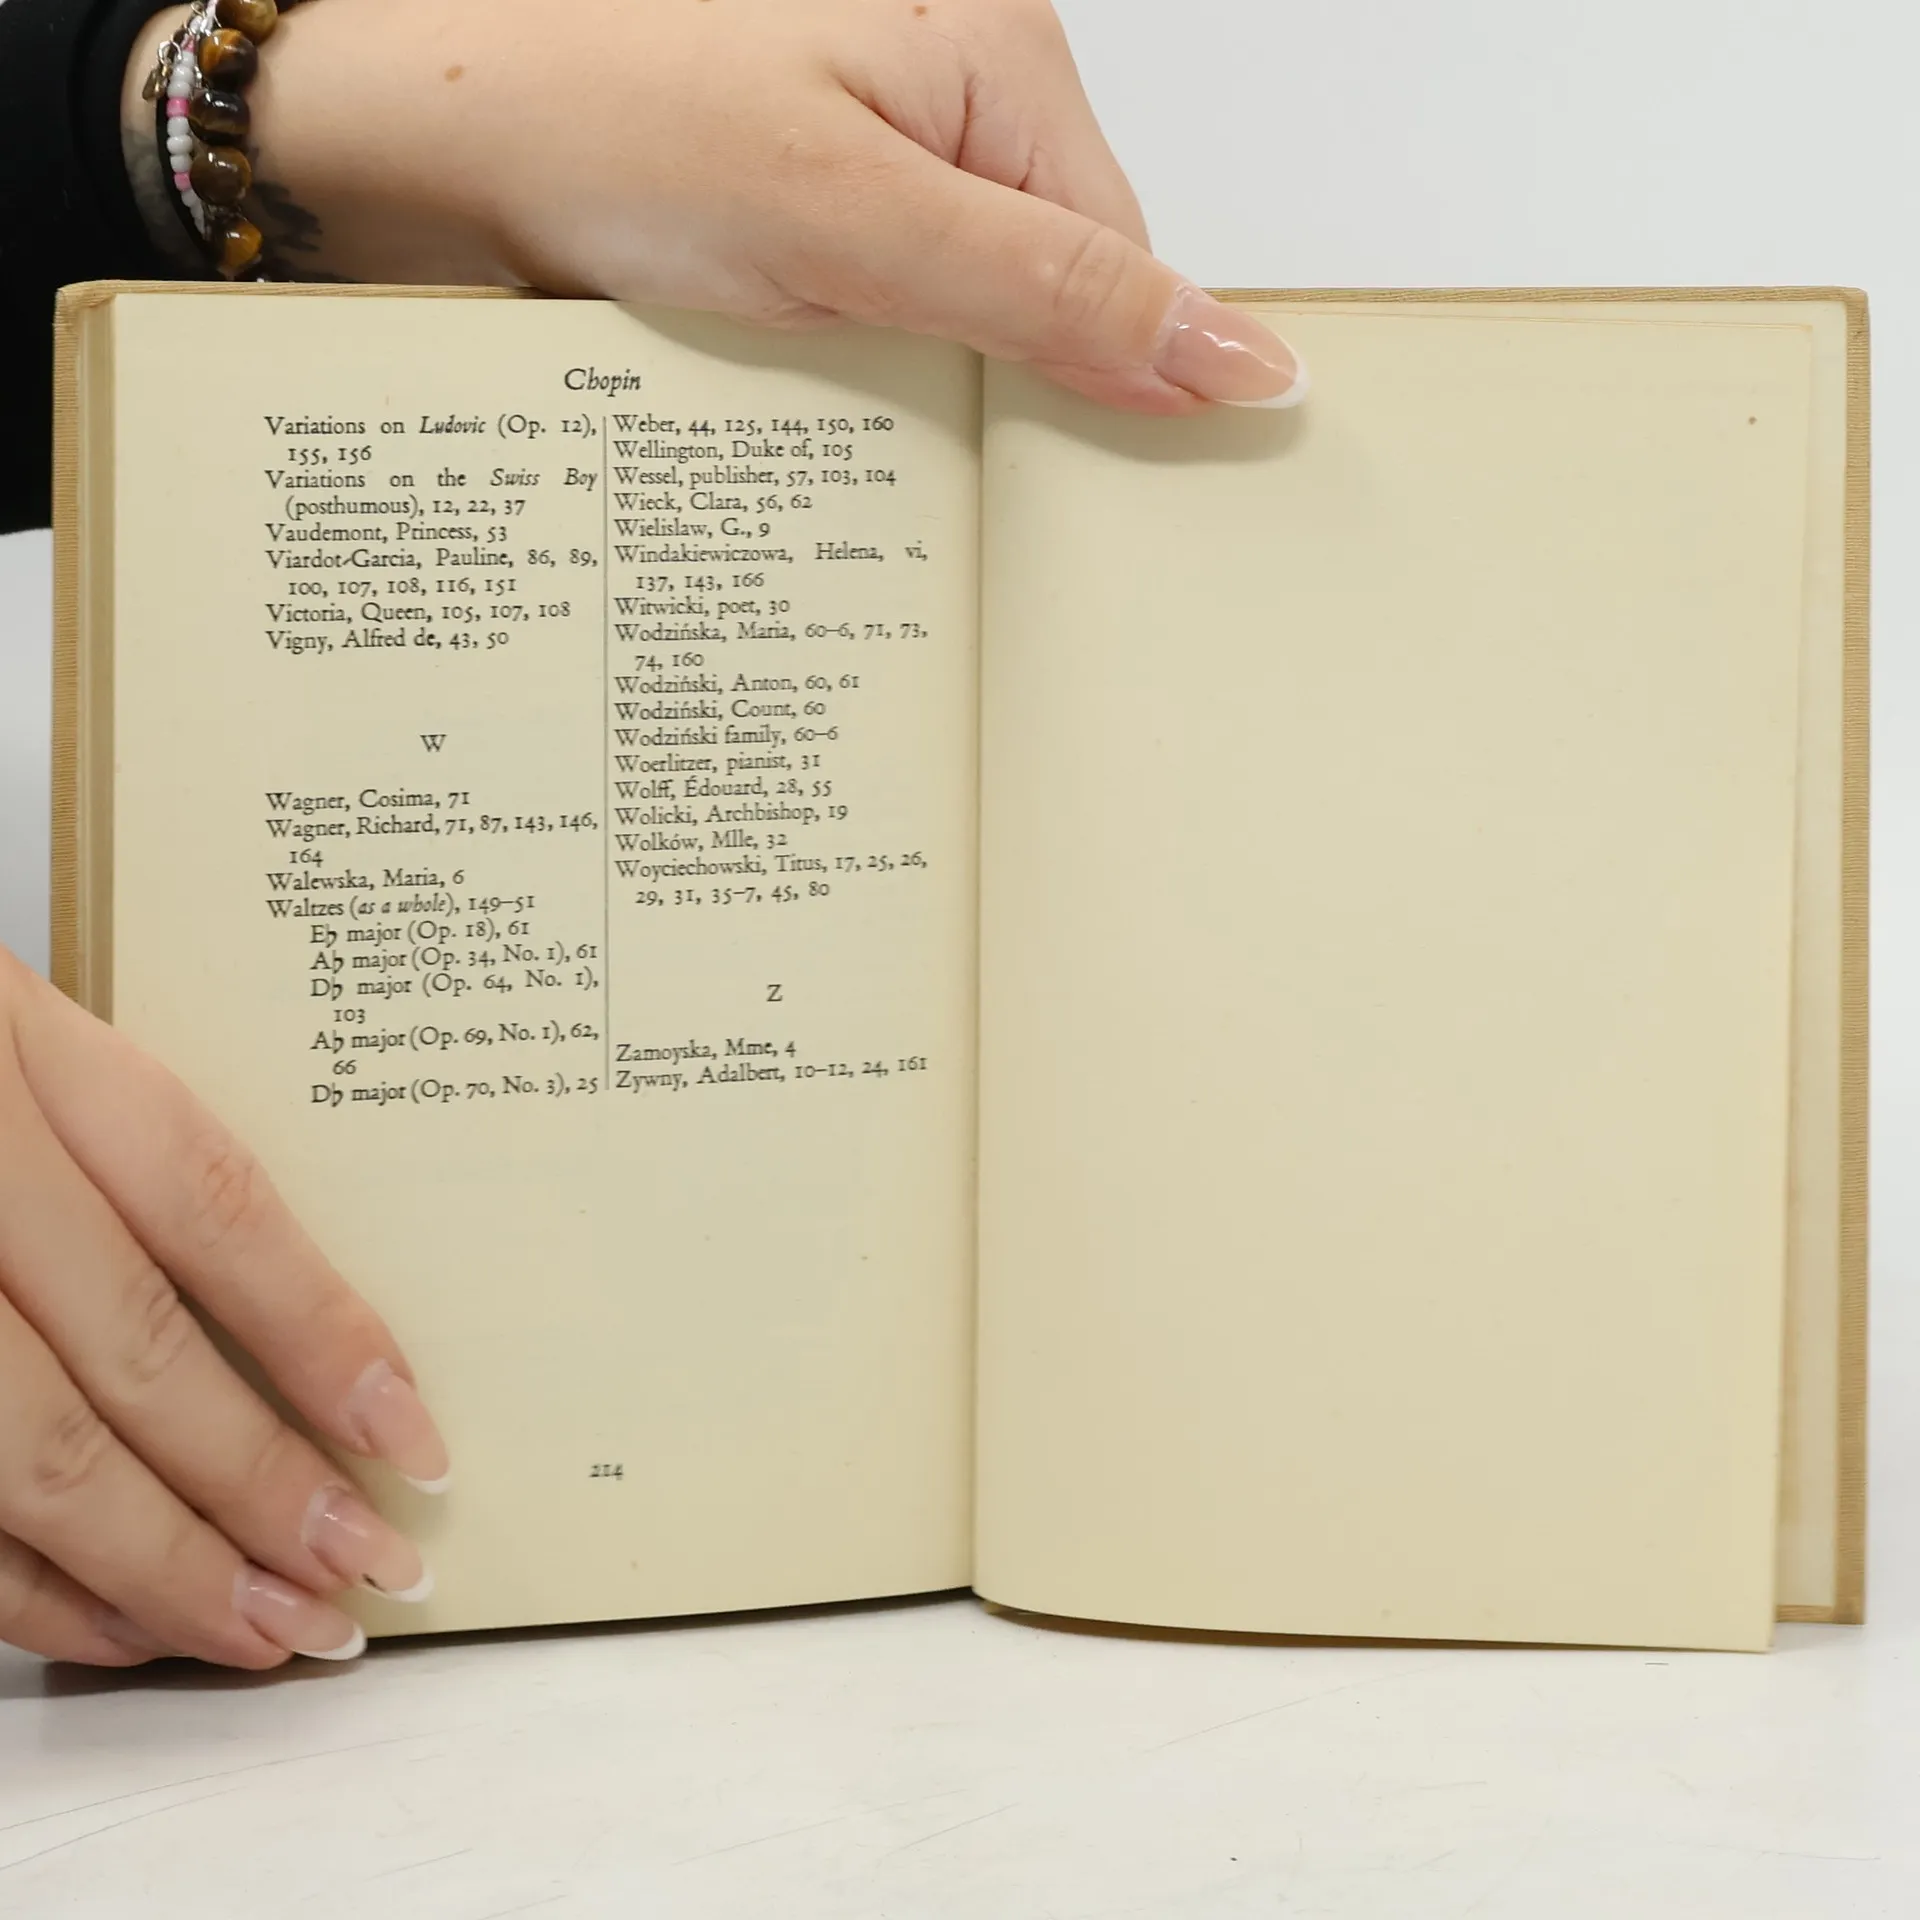 Chopin
Variations on Ludovic (Op. 12),
155, 156
Variations on the Swiss Boy
(posthumous), 12, 22, 37
Vaudemont, Princess, 53
Viardot-Garcia, Pauline, 86, 89,
100, 107, 108, 116, 151
Victoria, Queen, 105, 107, 108
Vigny, Alfred de, 43, 50
W
Wagner, Cosima, 71
Wagner, Richard, 71, 87, 143, 146,
164
Walewska, Maria, 6
Waltzes (as a whole), 149–51
E♭ major (Op. 18), 61
A♭ major (Op. 34, No. 1), 61
D♭ major (Op. 64, No. 1),
103
A♭ major (Op. 69, No. 1), 62,
66
D♭ major (Op. 70, No. 3), 25
Weber, 44, 125, 144, 150, 160
Wellington, Duke of, 105
Wessel, publisher, 57, 103, 104
Wieck, Clara, 56, 62
Wielislaw, G., 9
Windakiewiczowa, Helena, vi,
137, 143, 166
Witwicki, poet, 30
Wodzińska, Maria, 60–6, 71, 73,
74, 160
Wodziński, Anton, 60, 61
Wodziński, Count, 60
Wodziński family, 60–6
Woerlitzer, pianist, 31
Wolff, Édouard, 28, 55
Wolicki, Archbishop, 19
Wolków, Mlle, 32
Woyciechowski, Titus, 17, 25, 26,
29, 31, 35–7, 45, 80
Z
Zamoyska, Mme, 4
Zywny, Adalbert, 10–12, 24, 161
214